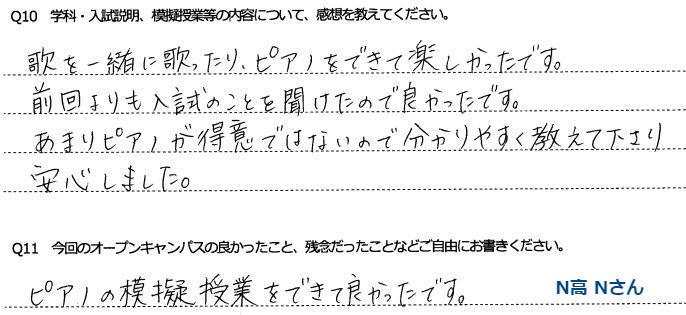 Q10 学科・入試説明、模擬授業等の内容について、感想を教えてください。
歌を一緒に歌ったり、ピアノをできて楽しかったです。
前回よりも入試のことを聞けたので良かったです。
あまりピアノが得意ではないので分かりやすく教えて下さり
安心しました。
Q11 今回のオープンキャンパスの良かったこと、残念だったことなどご自由にお書きください。
ピアノの模擬授業をできて良かったです。
N高 Nさん